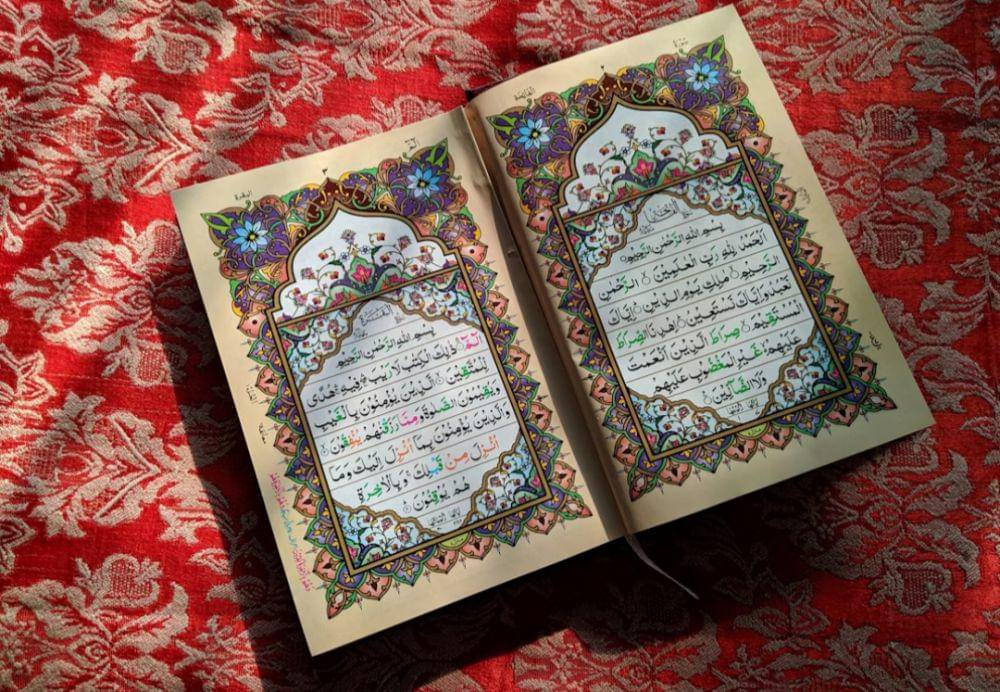 سورة
٢
الفاتحة
بِسْمِ اللهِ الرَّحْمٰنِ الرَّحِيْمِ
اَلْحَمْدُ لِلّٰهِ رَبِّ الْعٰلَمِيْنَ الرَّحْمٰنِ
الرَّحِيْمِ مٰلِكِ يَوْمِ الدِّيْنِ اِيَّاكَ
نَعْبُدُ وَاِيَّاكَ نَسْتَعِيْنُ اِهْدِنَا الصِّرَاطَ
الْمُسْتَقِيْمَ صِرَاطَ الَّذِيْنَ اَنْعَمْتَ
عَلَيْهِمْ غَيْرِ الْمَغْضُوْبِ عَلَيْهِمْ
وَلَا الضَّآلِّيْنَ
الم
٣
البقرة
بِسْمِ اللهِ الرَّحْمٰنِ الرَّحِيْمِ
الٓمّٓ ذٰلِكَ الْكِتٰبُ لَا رَيْبَ فِيْهِ هُدًى
لِّلْمُتَّقِيْنَ الَّذِيْنَ يُؤْمِنُوْنَ بِالْغَيْبِ
وَيُقِيْمُوْنَ الصَّلٰوةَ وَمِمَّا رَزَقْنٰهُمْ يُنْفِقُوْنَ
وَالَّذِيْنَ يُؤْمِنُوْنَ بِمَآ اُنْزِلَ اِلَيْكَ وَمَآ
اُنْزِلَ مِنْ قَبْلِكَ وَبِالْاٰخِرَةِ
هُمْ يُوْقِنُوْنَ